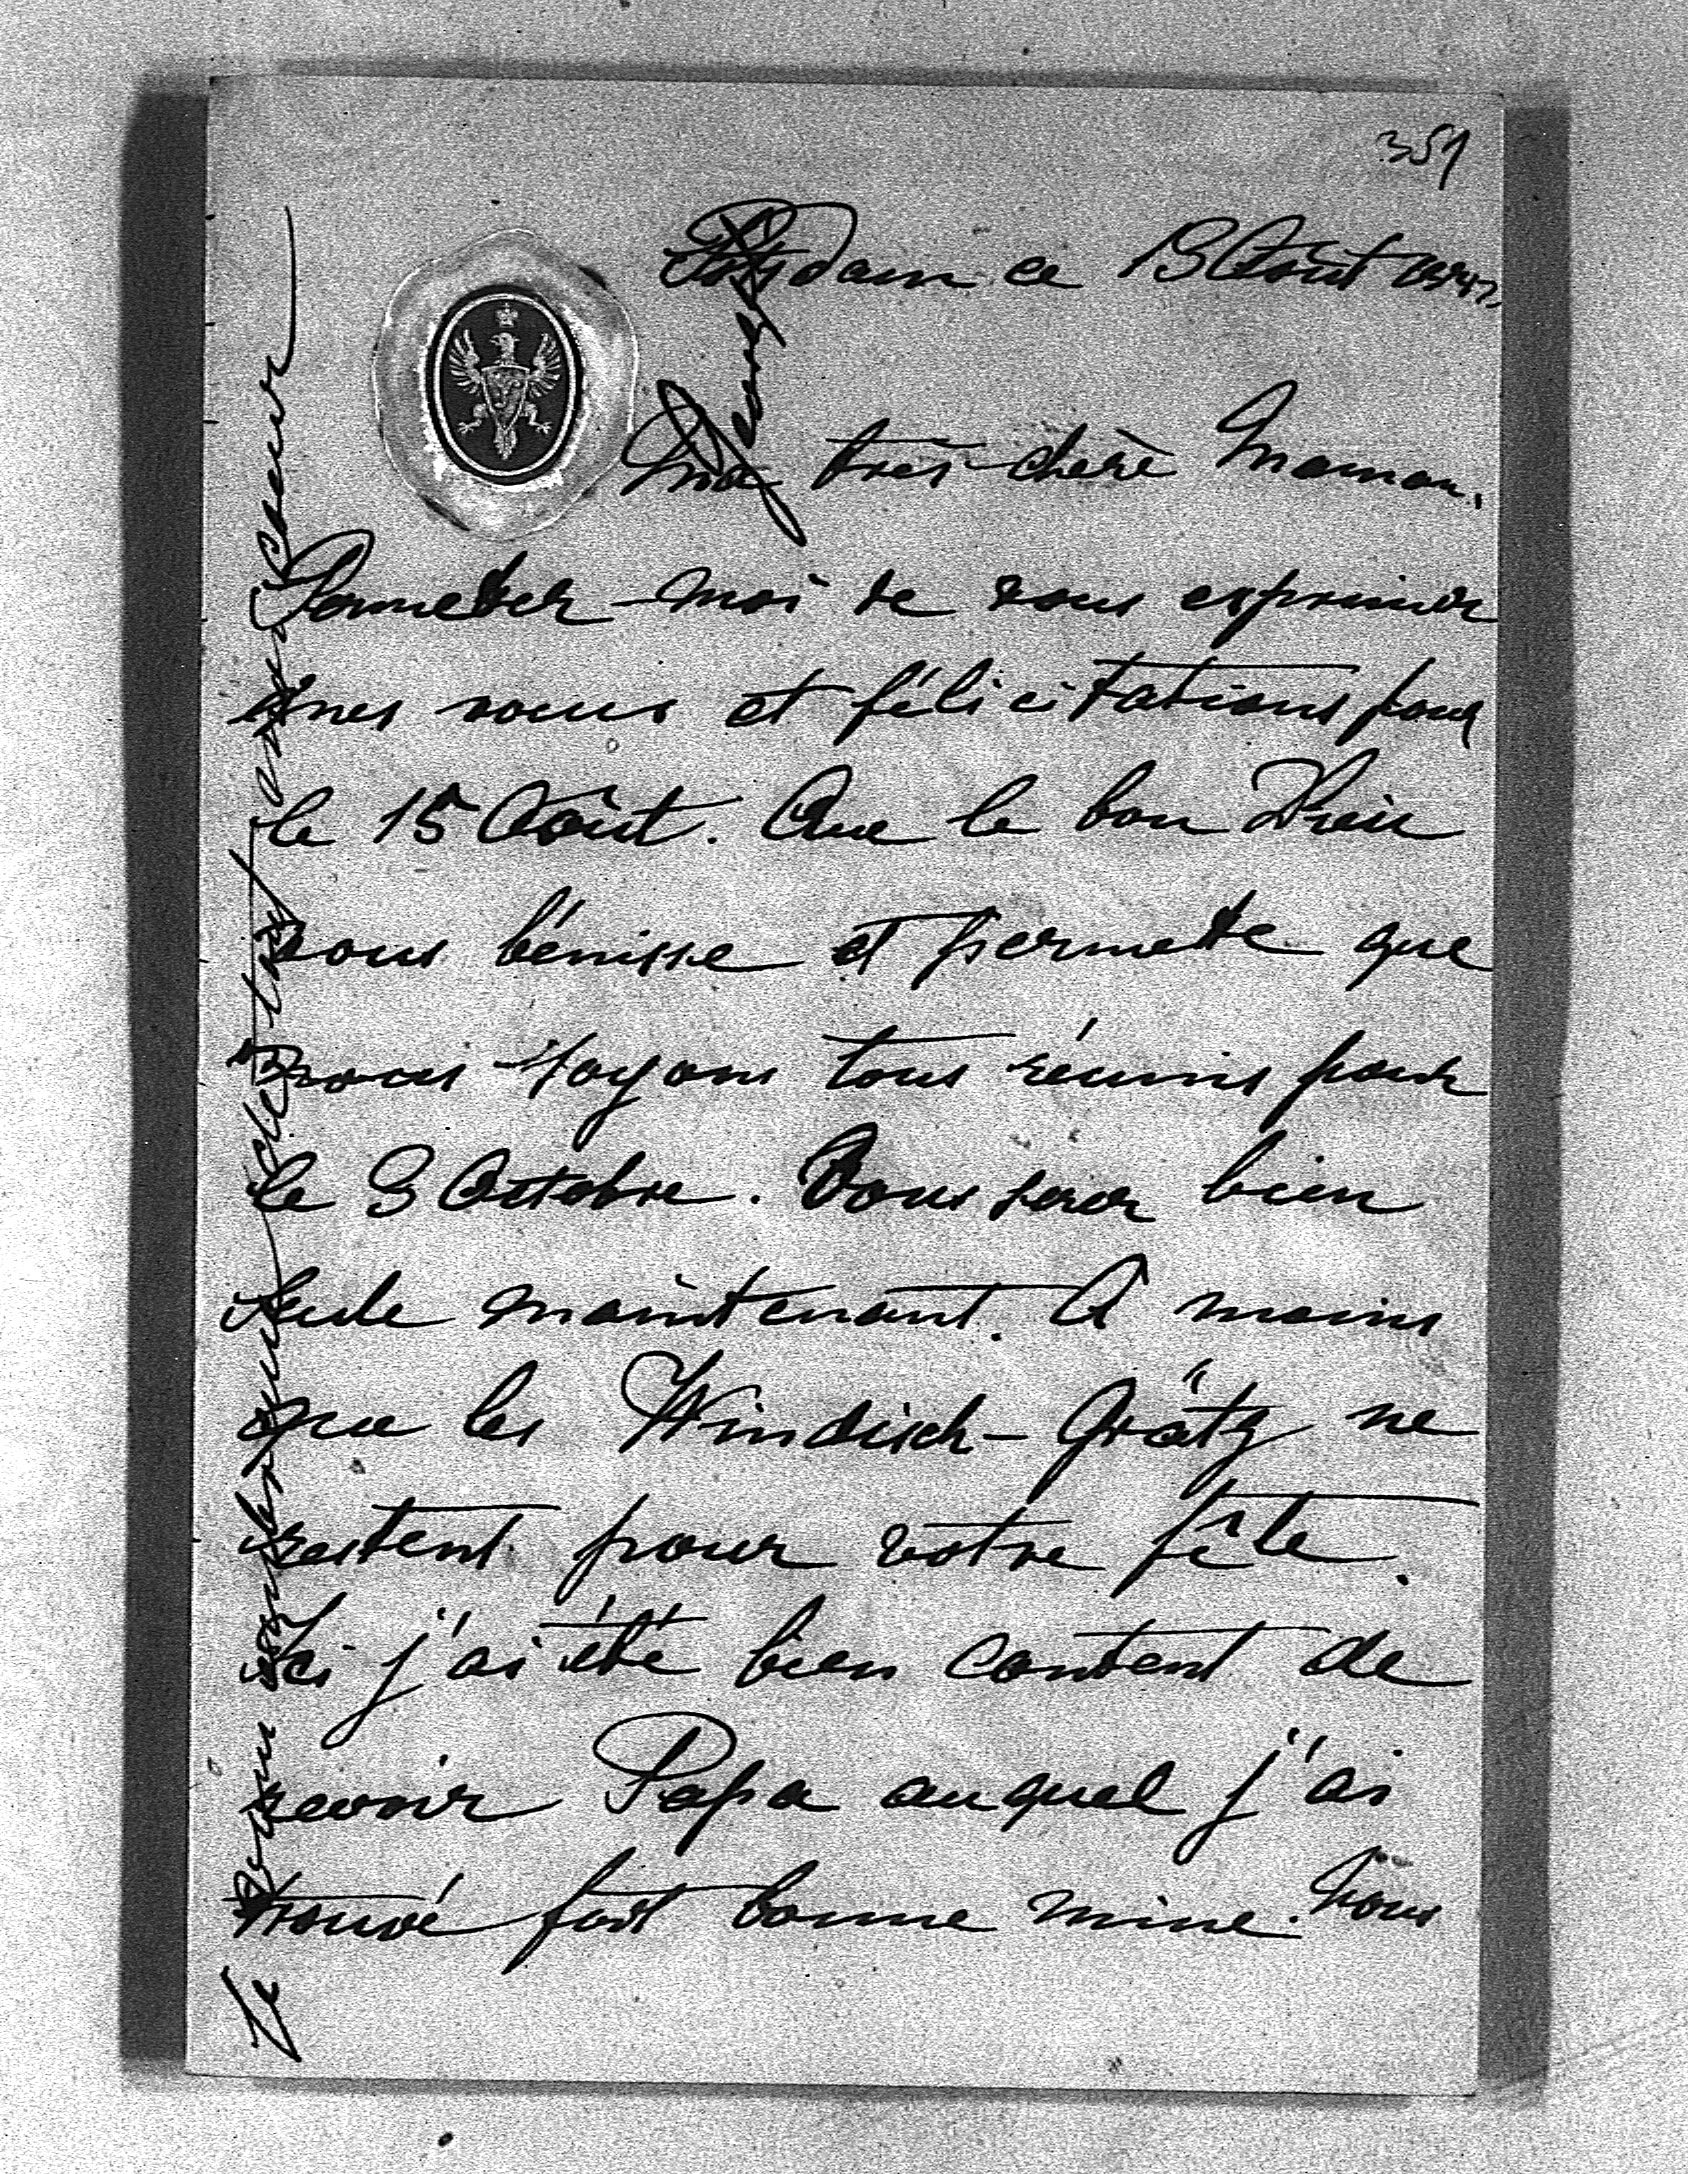 351
Potsdam ce 13 Août
Ma très chère Maman.
Permetter-moi de vous exprimer
mes voeus et félicitations pour
le 15 Août. Que le bon Dieu
vous bénisse et permete que
nous soyons tous réunis pour
le 3 Octobre. Vous serer bien
seule maintenant. A moins
que les Windisch-Grätz ne
restent pour votre fête.
Ici j'ai été bien content de
revoir Papa auquel j'ai
trouvé fort bonne mine. Nous
Je vous